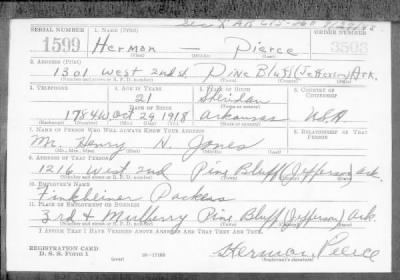 SERIAL NUMBER 1. NAME (Print) ORDER NUMBER
1599 Herman — Pierce 3503
(First) (Middle) (Last)
2. ADDRESS (Print)
1301 West 2nd st. Pine Bluff (Jefferson) Ark.
(Number and street or R. F. D. number) (Town) (County) (State)
3. TELEPHONE 4. AGE IN YEARS 5. PLACE OF BIRTH 6. COUNTRY OF CITIZENSHIP
21 Sheridan
DATE OF BIRTH (Town or county)
1784W Oct 29 1918 Arkansas USA
(Exchange) (Number) (Mo.) (Day) (Yr.) (State or country)
7. NAME OF PERSON WHO WILL ALWAYS KNOW YOUR ADDRESS 8. RELATIONSHIP OF THAT PERSON
Mr. Henry N. Jones
(Mr., Mrs., Miss) (First) (Middle) (Last)
9. ADDRESS OF THAT PERSON
1216 West 2nd Pine Bluff (Jefferson) Ark.
(Number and street or R. F. D. number) (Town) (County) (State)
10. EMPLOYER'S NAME
Finkbeiner Packers
11. PLACE OF EMPLOYMENT OR BUSINESS
3rd & Mulberry Pine Bluff (Jefferson) Ark.
(Number and street or R. F. D. number) (Town) (County) (State)
I AFFIRM THAT I HAVE VERIFIED ABOVE ANSWERS AND THAT THEY ARE TRUE.
REGISTRATION CARD
D. S. S. Form 1 (over) 16—17105 Herman Peerce
(Registrant's signature)